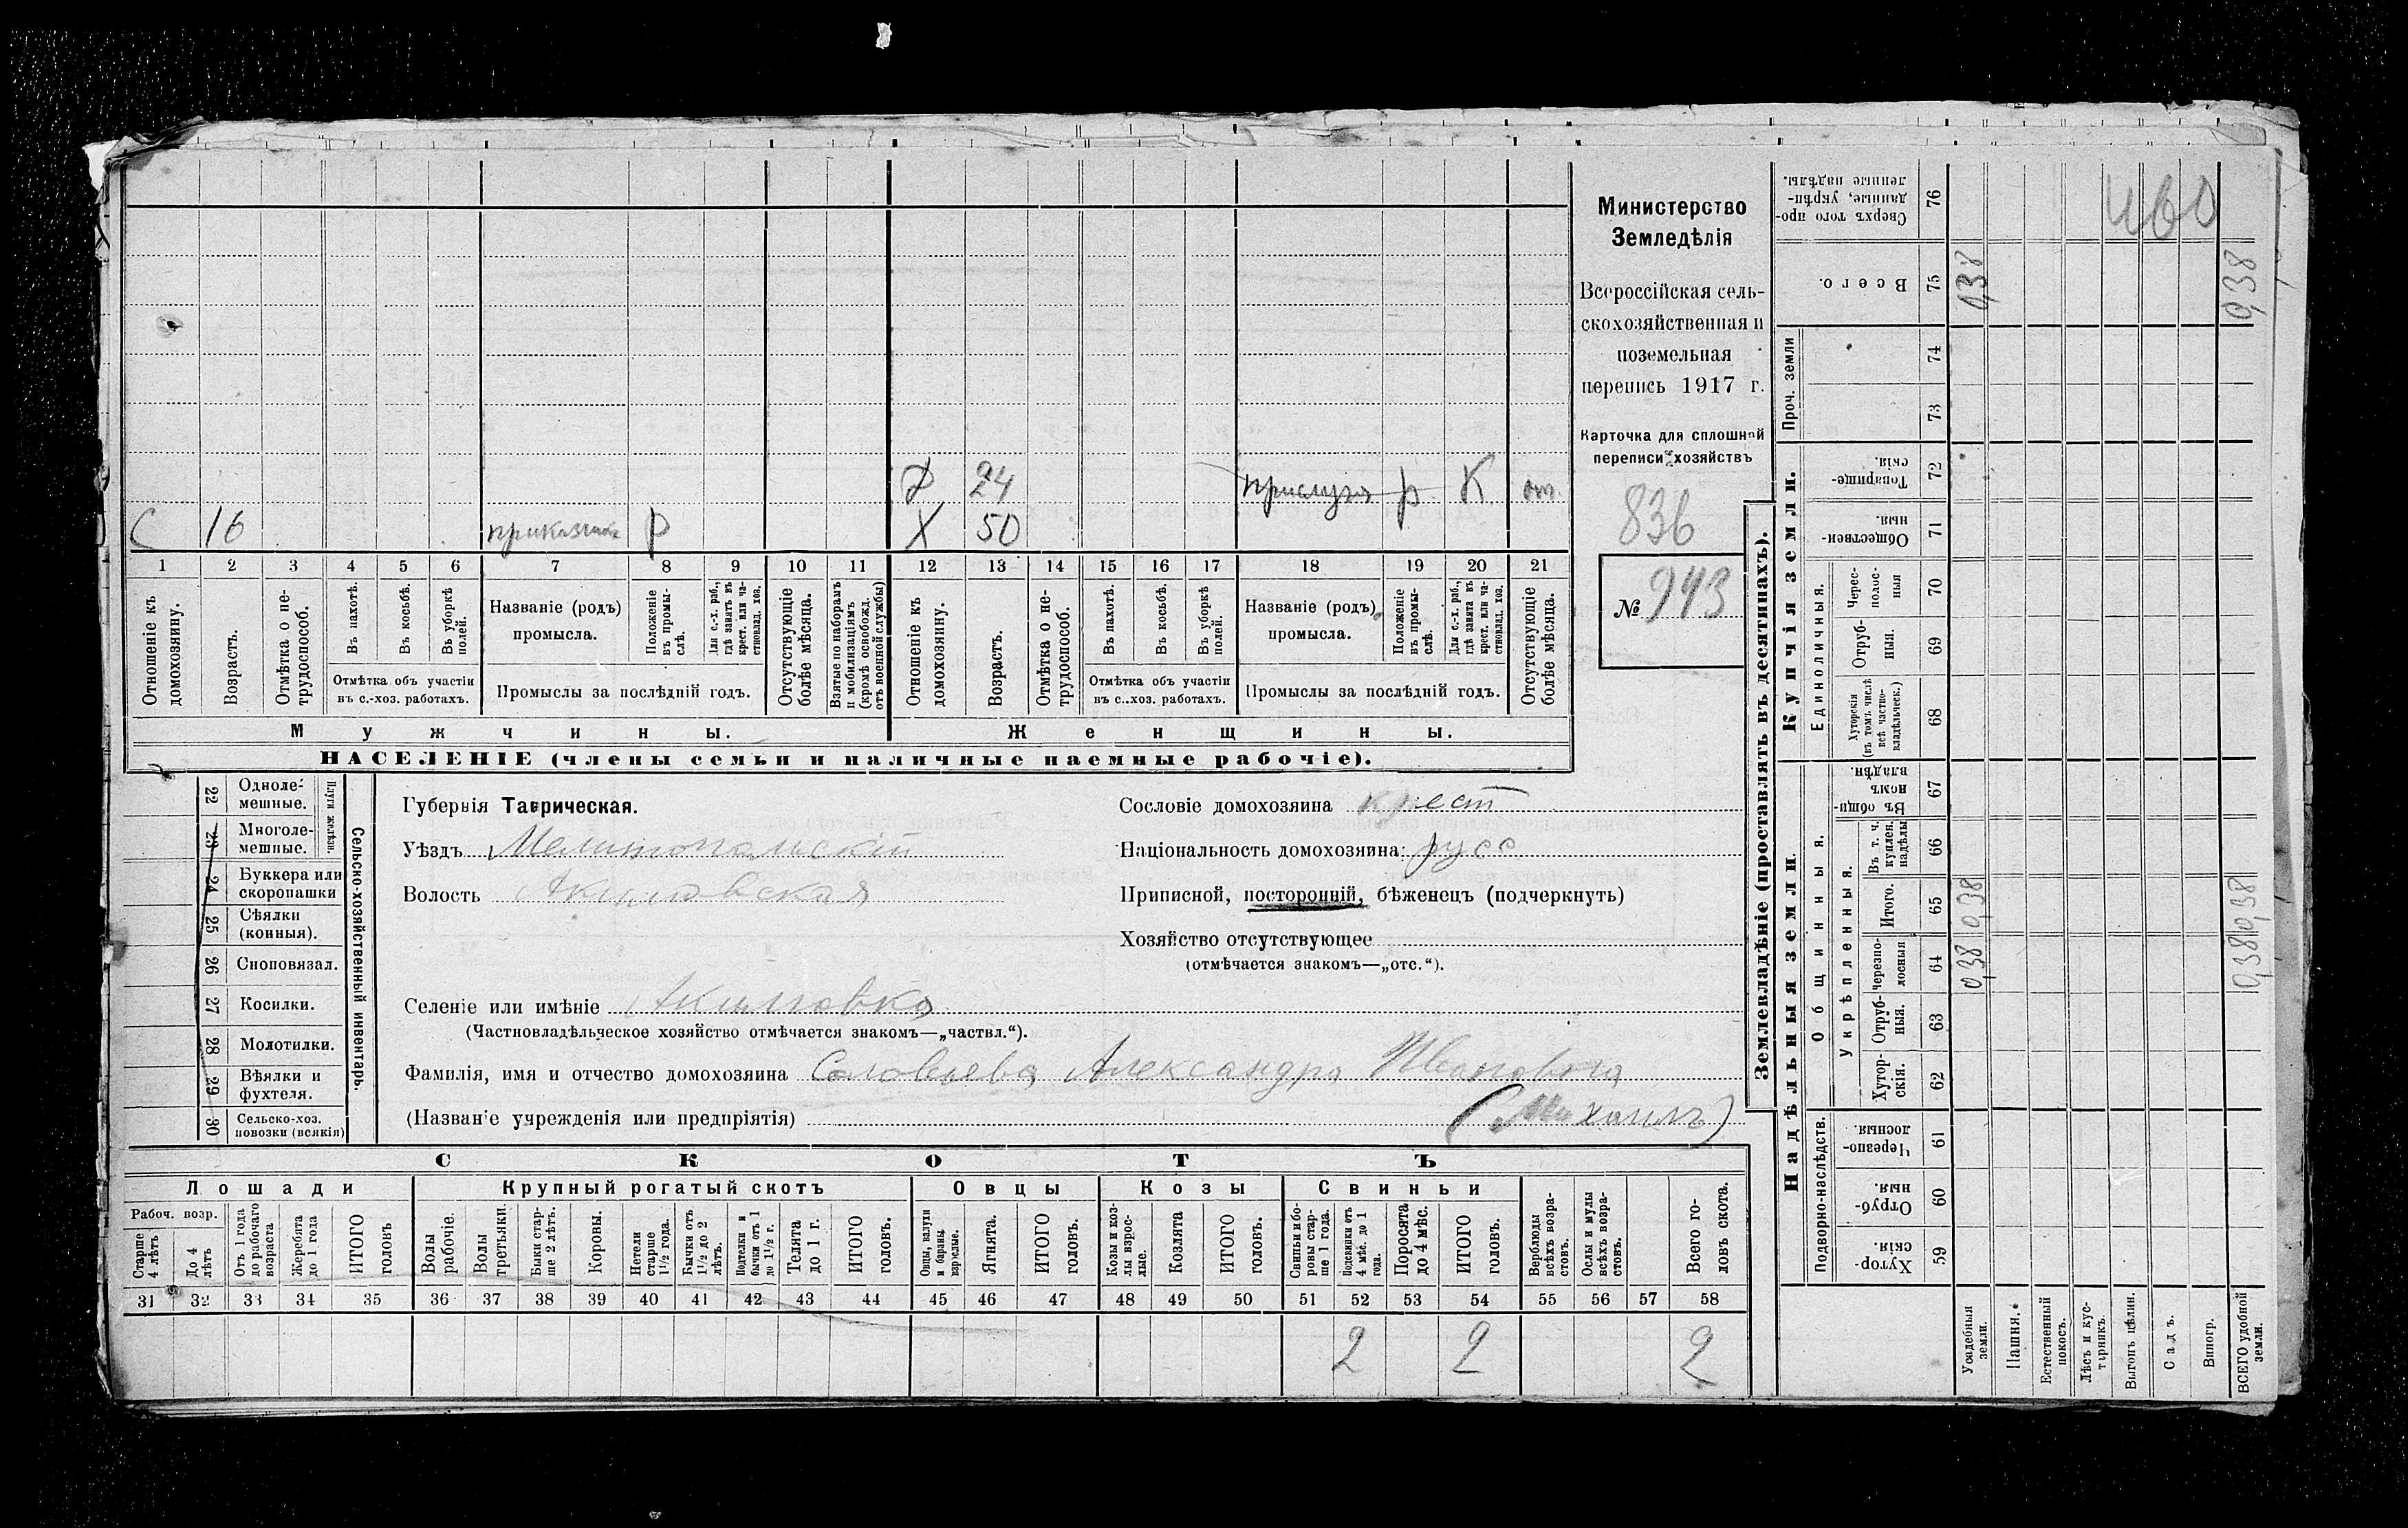 С 16 приказчик Р
Х 50
Д 24 прислуга р К от.
1 2 3 4 5 6 7 8 9 10 11 12 13 14 15 16 17 18 19 20 21
Отношеніе къ домохозяину.
Возрастъ.
Отмѣтка о не-
трудоспособ.
Въ пахотѣ.
Въ косьбѣ.
Въ уборкѣ полей.
Отмѣтка объ участіи
въ с.-хоз. работахъ.
Названіе (родъ)
промысла.
Положеніе въ промы-
слѣ.
Для с.-х. раб.,
гдѣ занятъ въ
крест. или ча-
стновлад. хоз.
Промыслы за послѣдній годъ.
Отсутствующіе
болѣе мѣсяца.
Взятые по наборамъ
и мобилизаціямъ
(кромѣ освобожд.
отъ военной службы)
Отношеніе къ домохозяину.
Возрастъ.
Отмѣтка о не-
трудоспособ.
Въ пахотѣ.
Въ косьбѣ.
Въ уборкѣ полей.
Отмѣтка объ участіи
въ с..хоз. работахъ.
Названіе (родъ)
промысла.
Положеніе въ промы-
слѣ.
Для с.-х. раб.,
гдѣ занята въ
крест. или ча-
стновлад. хоз.
Промыслы за послѣдній годъ.
Отсутствующіе
болѣе мѣсяца.
Мужчины.
Женщины.
НАСЕЛЕНІЕ (члены семьи и наличные наемные рабочіе).
Министерство
Земледѣлія
Всероссійская сель-
скохозяйственная и
поземельная
перепись 1917 г.
Карточка для сплошной
переписи хозяйствъ
836
№ 943
22 Одноле-
мешные.
23 Многоле-
мешные.
Плуги желѣзн.
24 Буккера или
скоропашки
25 Сѣялки
(конныя).
26 Сноповязал.
27 Косилки.
28 Молотилки.
29 Вѣялки и
фухтеля.
30 Сельско-хоз.
повозки (всякія)
Сельско-хозяйственный инвентарь.
Губернія Таврическая.
Уѣздъ Мелитопольскій
Волость Акимовская
Селеніе или имѣніе Акимовка
(Частновладѣльческое хозяйство отмѣчается знакомъ—„частвл.“).
Фамилія, имя и отчество домохозяина Соловьева Александра Ивановича
(Названіе учрежденія или предпріятія) (Михаилъ)
Сословіе домохозяина крест
Національность домохозяина: русс
Приписной, посторонній, бѣженецъ (подчеркнуть)
Хозяйство отсутствующее
(отмѣчается знакомъ—„отс.“).
СКОТЪ
Лошади
Крупный рогатый скотъ
Овцы
Козы
Свиньи
Рабоч. возр.
Старше 4 лѣтъ
До 4 лѣтъ
Отъ 1 года
до рабочаго
возраста
Жеребята
до 1 года
ИТОГО
головъ
Волы
рабочіе.
Волы
третьяки.
Быки стар-
ше 2 лѣтъ.
Коровы.
Нетели
старше
1½ года.
Бычки отъ
1½ до 2
лѣтъ.
Подтелки и
бычки отъ 1
до 1½ г.
Телята
до 1 г.
ИТОГО
головъ.
Овцы, валухи
и бараны
взрослые.
Ягнята.
ИТОГО
головъ.
Козы и коз-
лы взрос-
лые.
Козлята
ИТОГО
головъ.
Свиньи и бо-
ровы стар-
ше 1 года.
Подсвинки отъ
4 мѣс. до 1
года.
Поросята
до 4 мѣс.
ИТОГО
головъ.
Верблюды
всѣхъ возра-
стовъ.
Ослы и мулы
всѣхъ возра-
стовъ.
Всего го-
ловъ скота.
31 32 33 34 35 36 37 38 39 40 41 42 43 44 45 46 47 48 49 50 51 52 53 54 55 56 57 58
2 2 2
Землевладѣніе (проставлять въ десятинахъ).
Надѣльныя земли.
Купчія земли.
Проч. земли
Подворно-наслѣдств.
Общинныя.
Укрѣпленныя.
Единоличныя.
Хутор-
скія. 59
Отруб-
ныя. 60
Черезпо-
лосныя. 61
Хутор-
скія. 62
Отруб-
ныя. 63
Черезпо-
лосныя 64
Итого. 65
Въ т. ч.
куплен.
надѣлы 66
Въ общин-
номъ
владѣн. 67
Хуторскія
(въ томъ числѣ
всѣ частно-
владѣльческ.) 68
Отруб-
ныя. 69
Черес-
полос-
ныя 70
Обществен-
ныя. 71
Товарище-
скія. 72
73
74
Всего. 75
Сверхъ того про-
данные, укрѣп-
ленные надѣлы. 76
Усадебныя
земли.
0,38 0,38 0,38
Пашня.
Естественный
покосъ.
Лѣсъ и кус-
тарникъ.
Выгонъ цѣлин.
Садъ.
Виногр.
ВСЕГО удобной
земли.
0,38 0,38 0,38
460